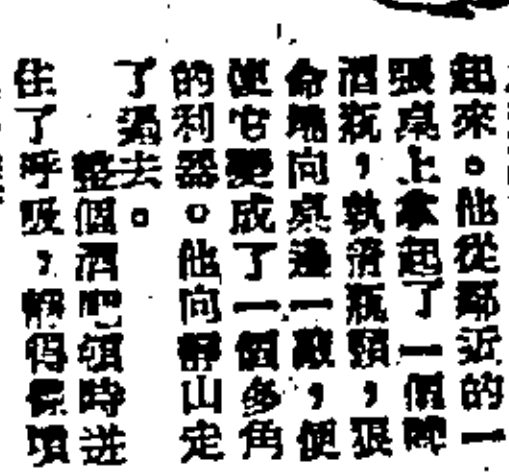 起來。他從鄰近的一
張桌上拿起了一個啤
酒瓶,執着瓶頸,狠
命地向桌邊一敲,便
使它變成了一個多角
的利器。他向靜山定
了過去。
整個酒吧頓時迸
住了呼吸,靜得像墳